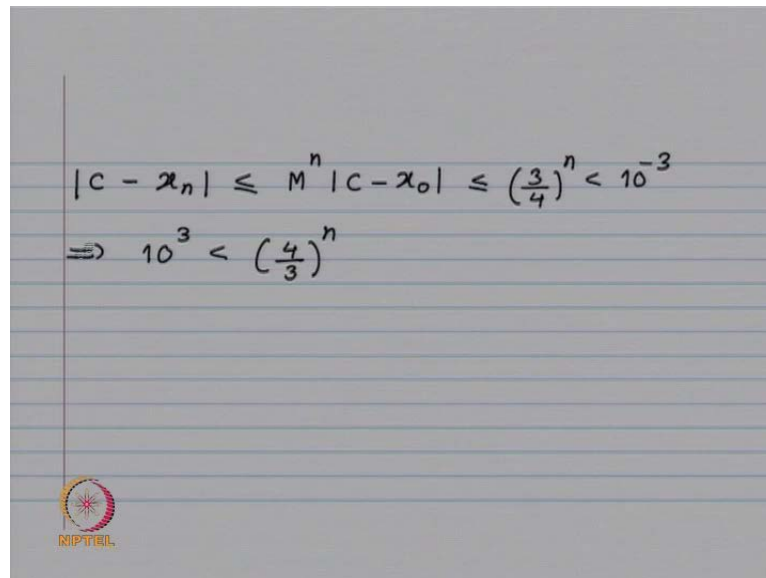 |c - xₙ| ≤ Mⁿ |c - x₀| ≤ (3/4)ⁿ < 10⁻³
⇒ 10³ < (4/3)ⁿ
NPTEL